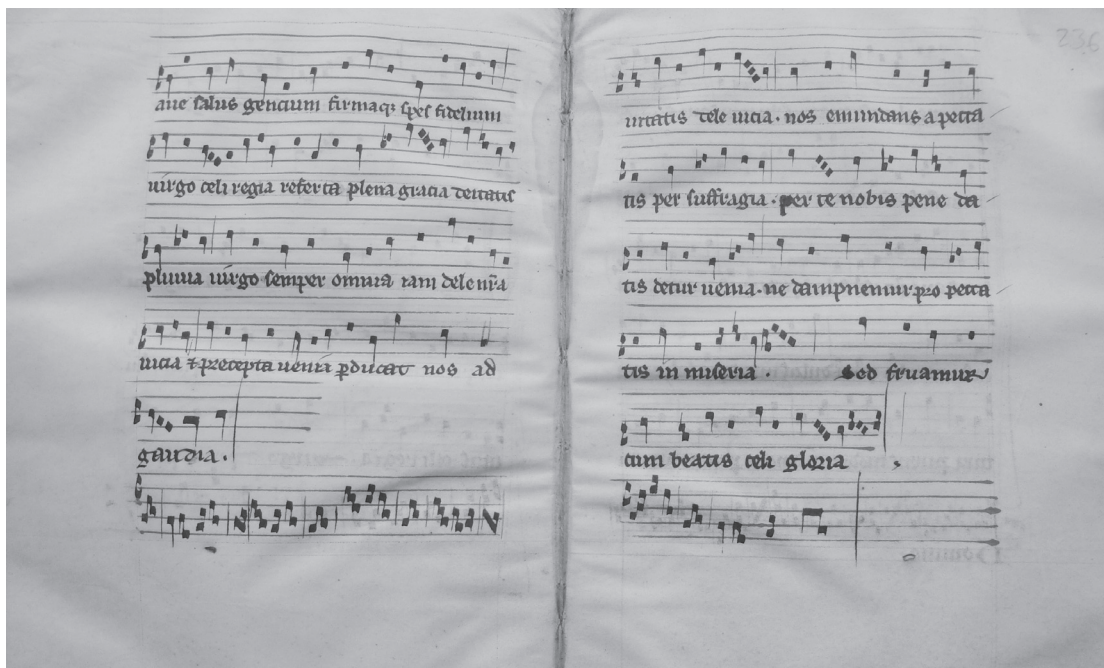 aue salus gencium firmaqꝫ spes fidelium
uirgo celi regia referta plena gracia deitatis
pluuia uirgo semper omnia iam dele nr̄a
uicia ⁊ precepta ueni ꝑducat nos ad
gaudia.
236
uitatis dele uicia. nos emundans a pecca
tis per suffragia. per te nobis pene da
tis detur uenia. ne dampnemur pro pecca
tis in miseria. Sed fruamur
cum beatis celi gloria